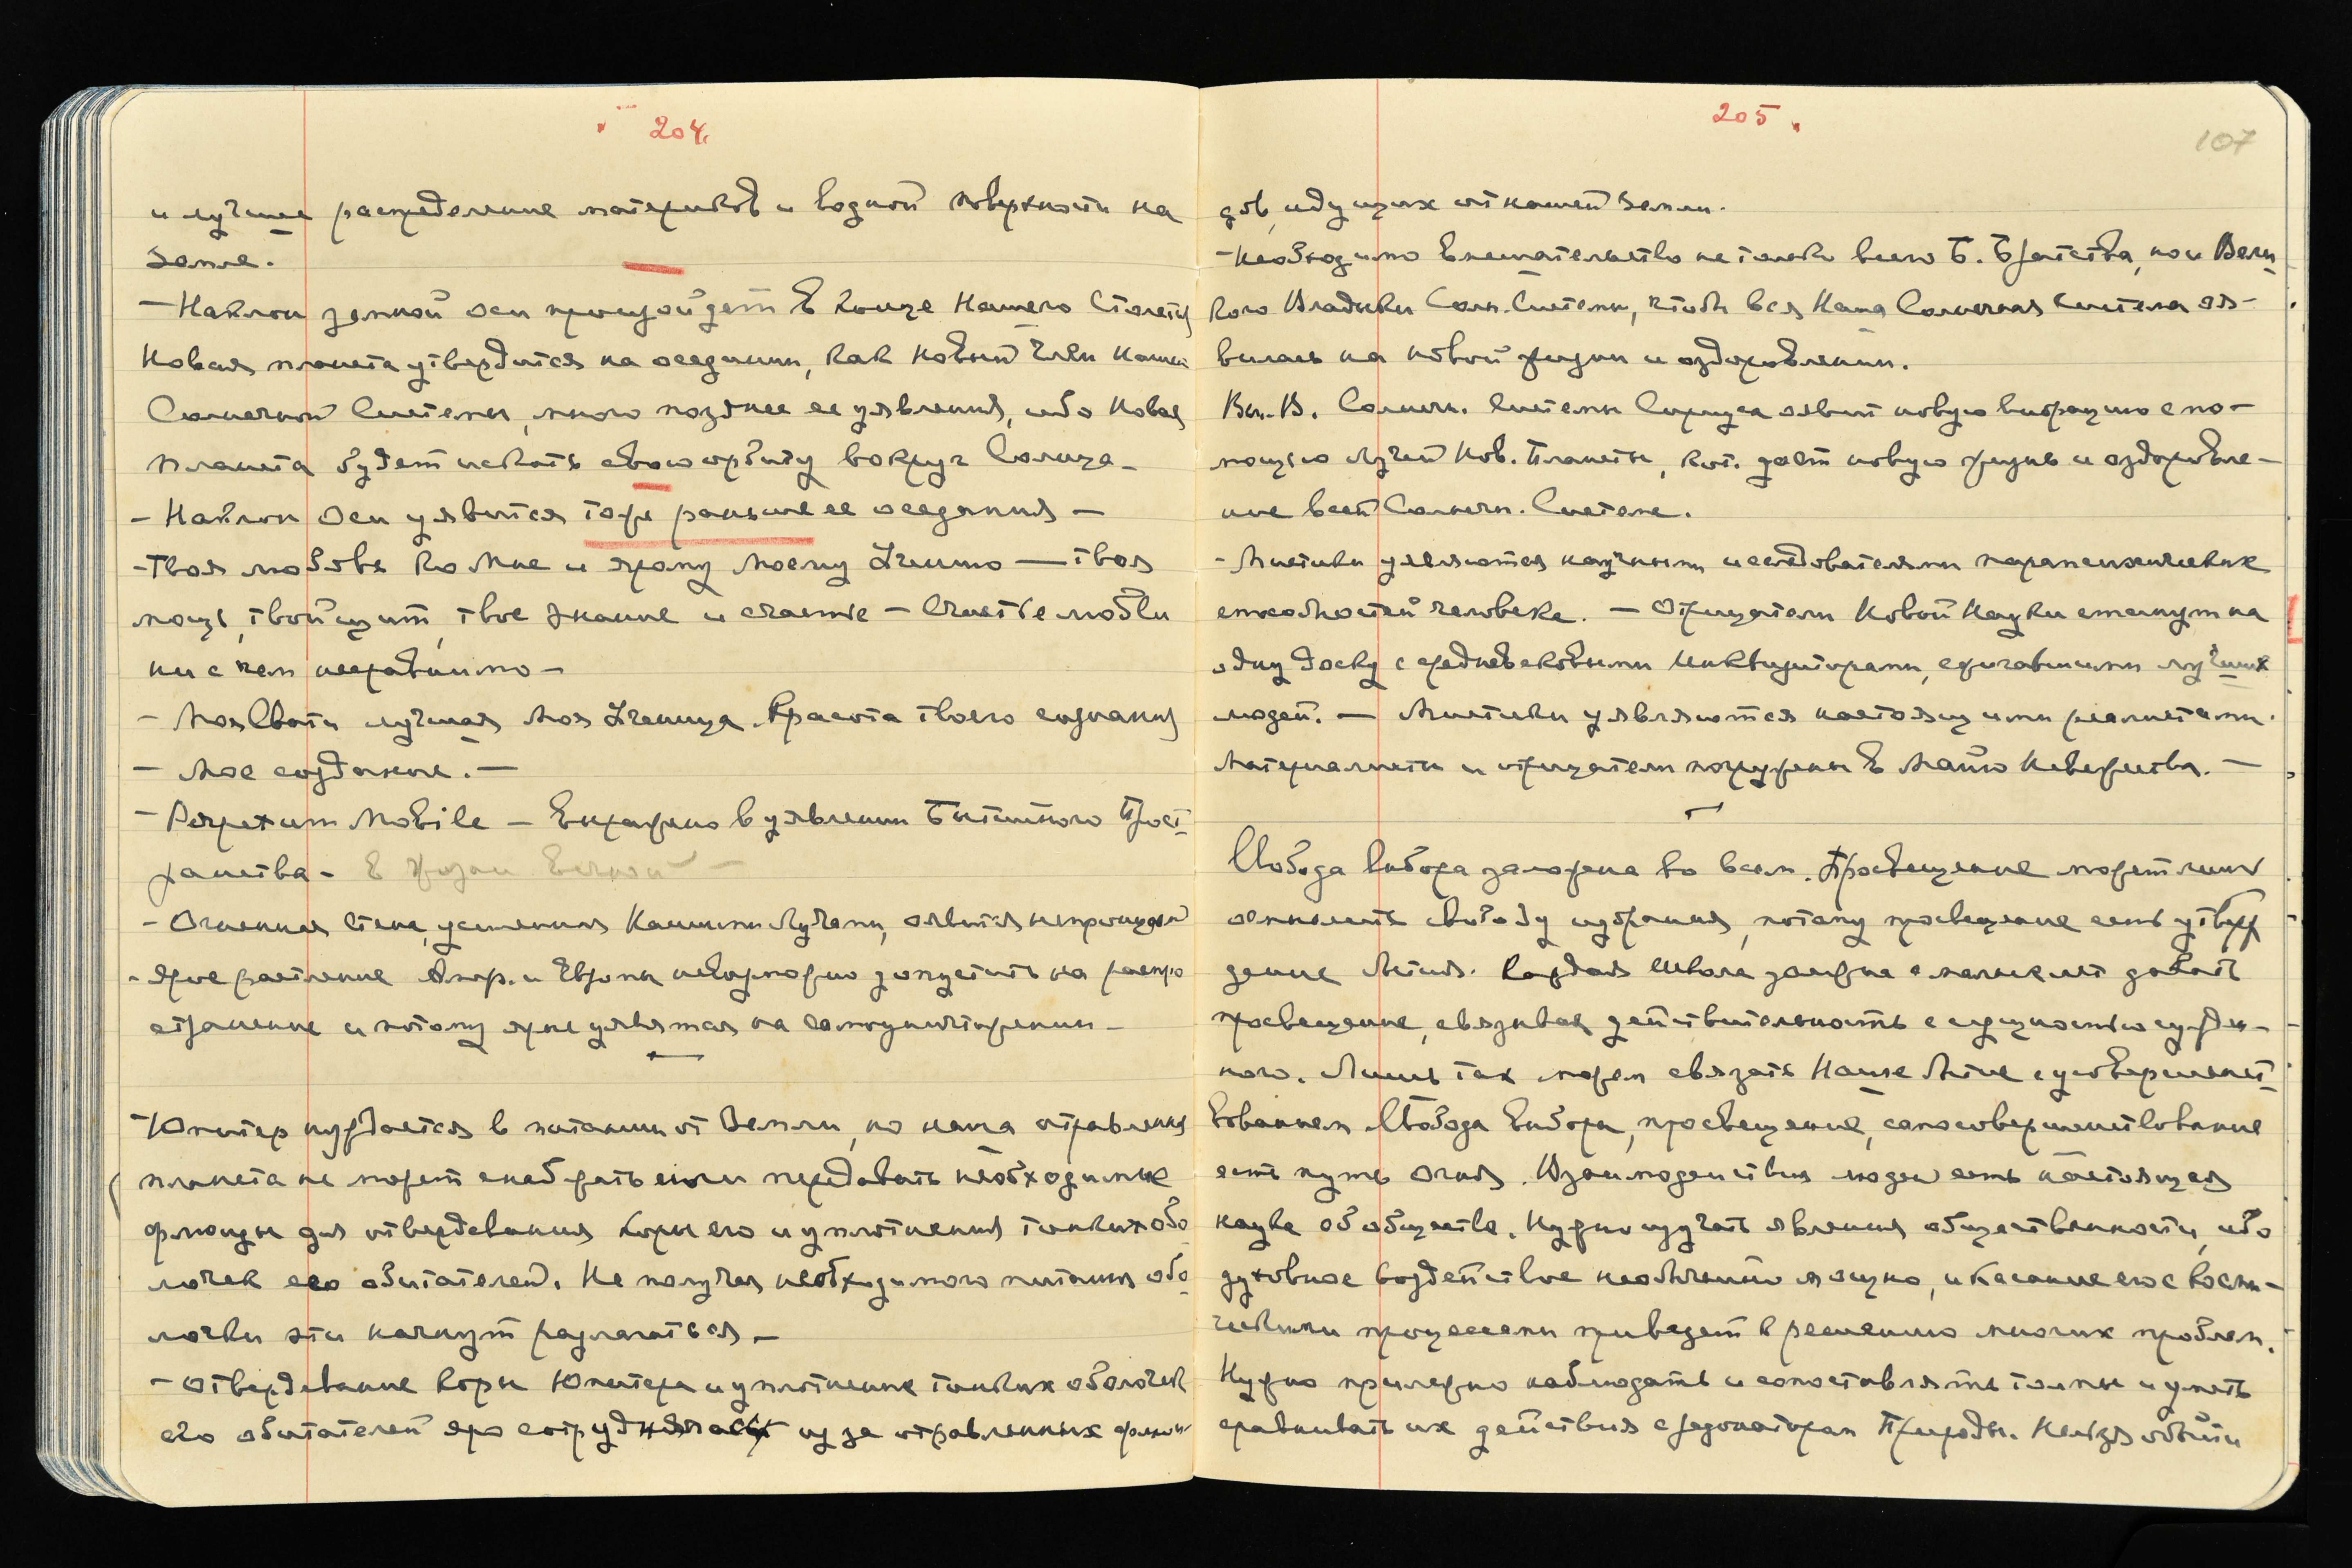 204.
и лучшее распределение материков и водной поверхности на
Земле.
— Наклон земной оси произойдет в конце Нашего Столетия
Новая планета утвердится на оседании, как новый член нашей
Солнечной Системы, много позднее ее уявления, ибо Новая
планета будет искать свою орбиту вокруг Солнца —
— Наклон Оси уявится тоже раньше ее оседания —
— Твоя любовь ко Мне и ярому Моему Учению — твоя
мощь, твой щит, твое знание и счастье — Счастье любви
ни с чем несравнимо —
— Моя Свати лучшая Моя Ученица. Красота твоего сознания
— Мое создание. —
— Perpetum Mobile — выражено в уявлении Бытийного Прост
ранства — в жизни вечной —
— Огненная стена, усиленная Нашими Лучами, явится непроницаемой
— Ярое растление Амер. и Европы невозможно допустить на распро
странение и потому ярые уявятся на самоуничтожении —
Юпитер нуждается в питании от Земли, но наша отравленная
планета не может снабжать его или передавать необходимые
флюиды для отвердевания коры его и уплотнения тонких обо
лочек его обитателей. Не получая необходимого питания обо
лочки эти начнут разлагаться —
— Отвердевание коры Юпитера и уплотнение тонких оболочек
его обитателей яро из за отравленных флюи
205.
107
дов, идущих от нашей Земли.
— Необходимо вмешательство не только всего Б. Братства, но и Вели
кого Владыки Солн. Системы, чтобы вся Наша Солнечная Система яв-
вилась на новой жизни и оздоровлении.
Вел. В. Солнечн. Системы Сириуса явит новую вибрацию с по-
мощью лучей Нов. Планеты, кот. даст новую жизнь и оздоровле-
ние всей Солнечн. Системе.
— Мистики уявляются научными исследователями парапсихических
способностей человека. — Отрицатели Новой Науки станут на
одну доску с средневековыми Инквизиторами, сжигавшими лучших
людей. — Мистики уявляются настоящими реалистами.
Материалисты и отрицатели погружены в Майю Невежества. —
Свобода выбора заложена во всем. Просвещение может лишь
осмыслить свободу избрания, потому просвещение есть утверж
дение Бытия. Каждая школа должна с малых лет давать
просвещение, связывая действительность с сущностью сужден-
ного. Лишь так можем связать Наше Бытие с усовершенст
вованием. Свобода выбора, просвещение, самосовершенствование
есть путь Огня. Взаимодействия людей есть настоящая
наука об обществе. Нужно изучать явления общественности, ибо
духовное воздействие необычайно мощно, и касание его с косми-
ческими процессами приведет к решению многих проблем.
Нужно прилежно наблюдать и сопоставлять толпы и уметь
сравнивать их действия с резонатором Природы. Нельзя обойти